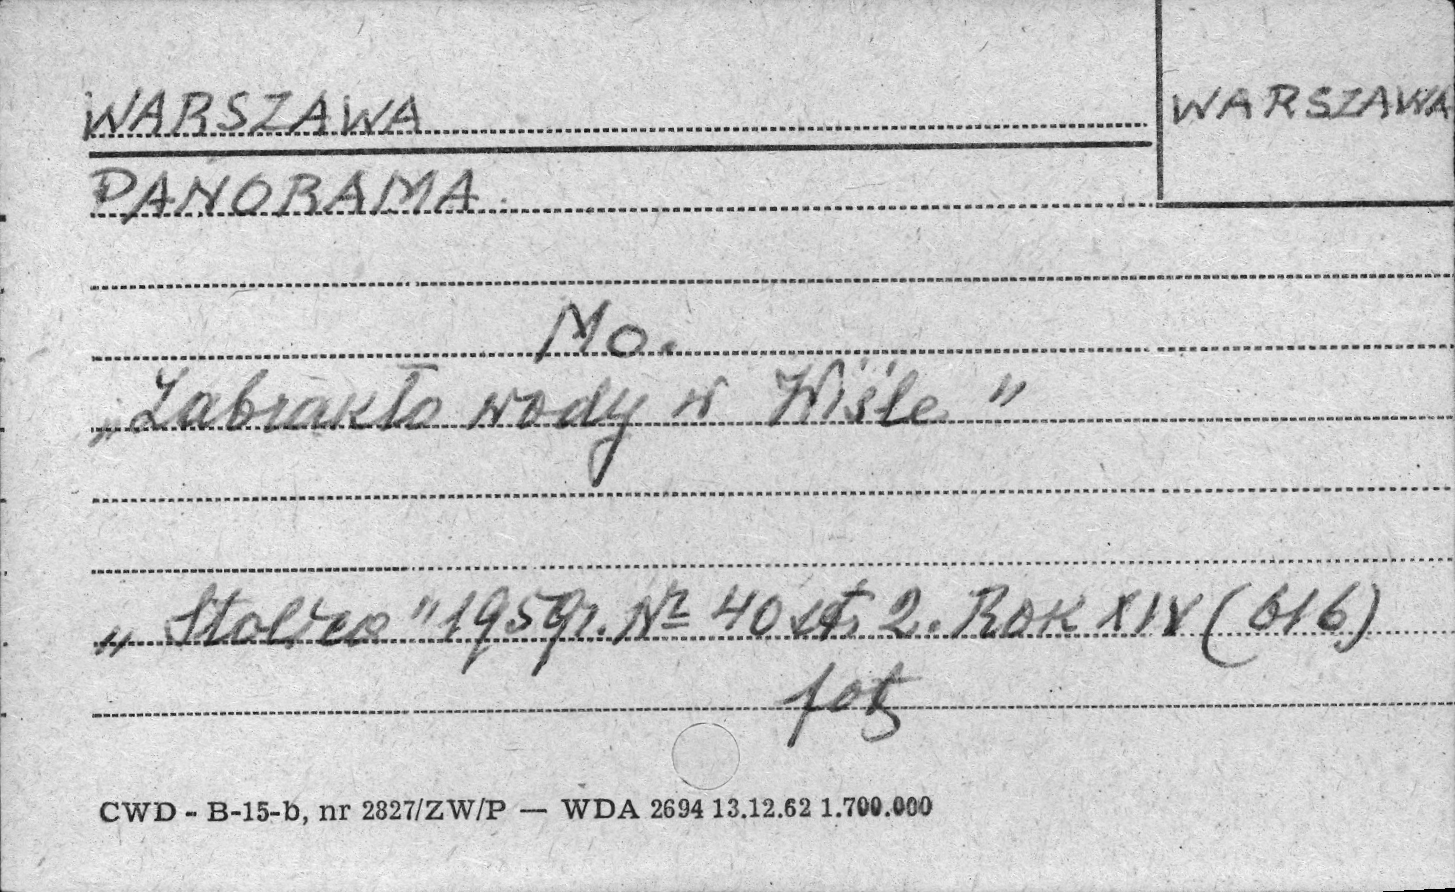 WARSZAWA
WARSZAWA
PANORAMA
Mo.
„Zabrakło wody w Wiśle"
„Stolica" 1959r. Nr 40 st. 2. Rok XIV (616)
fot
CWD - B-15-b, nr 2827/ZW/P — WDA 2694 13.12.62 1.700.000